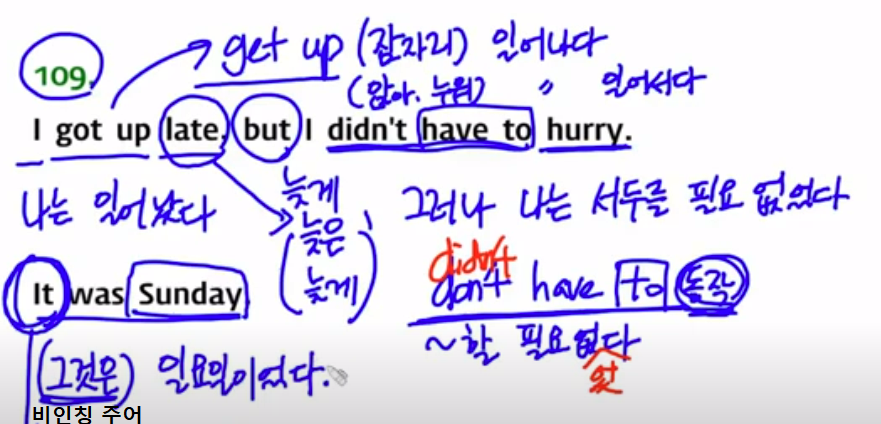 get up (잠자리) 일어나다
109.
(앉아. 누워) 〃 일어서다
I got up late, but I didn't have to hurry.
나는 일어났다
늦게
그러나 나는 서두를 필요 없었다
(늦은
늦게)
It was Sunday
didn't
don't have to 동작
~할 필요없다
었
(그것은) 일요일이었다.
비인칭 주어